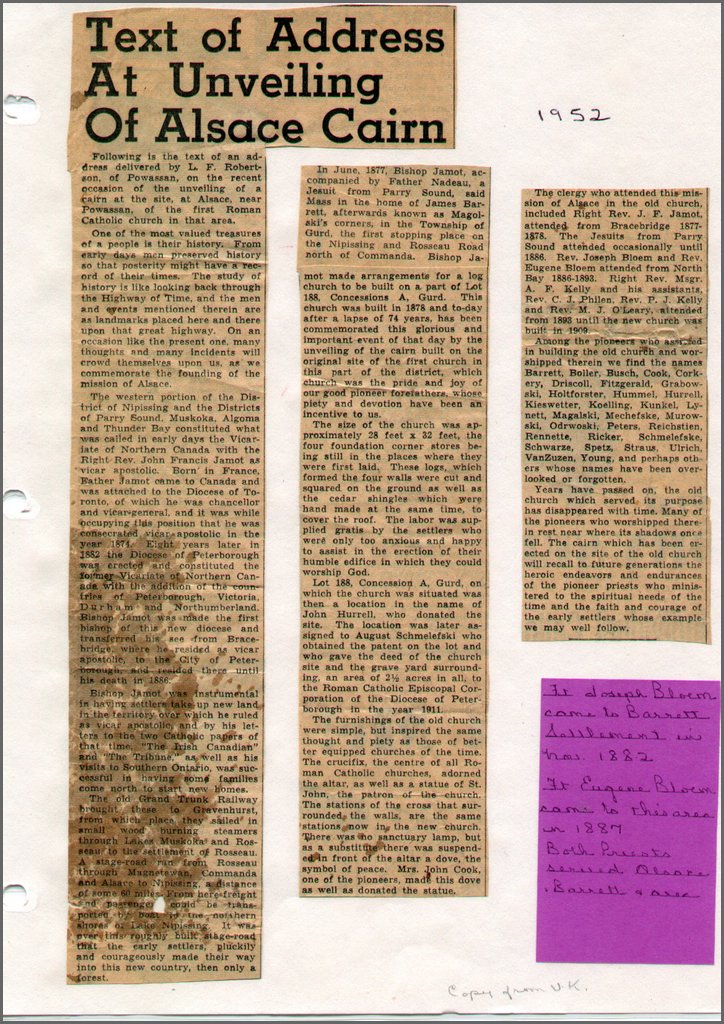 Text of Address
At Unveiling
Of Alsace Cairn
1952
Following is the text of an ad-
dress delivered by L. F. Robert-
son, of Powassan, on the recent
occasion of the unveiling of a
cairn at the site, at Alsace, near
Powassan, of the first Roman
Catholic church in that area.
One of the most valued treasures
of a people is their history. From
early days men preserved history
so that posterity might have a rec-
ord of their times. The study of
history is like looking back through
the Highway of Time, and the men
and events mentioned therein are
as landmarks placed here and there
upon that great highway. On an
occasion like the present one, many
thoughts and many incidents will
crowd themselves upon us, as we
commemorate the founding of the
mission of Alsace.
The western portion of the Dis-
trict of Nipissing and the Districts
of Parry Sound, Muskoka, Algoma
and Thunder Bay constituted what
was called in early days the Vicar-
iate of Northern Canada, with the
Right Rev. John Francis Jamot as
vicar apostolic. Born in France,
Father Jamot came to Canada and
was attached to the Diocese of To-
ronto, of which he was chancellor
and vicar-general, and it was while
occupying this position that he was
consecrated vicar apostolic in the
year 1874. Eight years later in
1882 the Diocese of Peterborough
was erected and constituted the
former Vicariate of Northern Can-
ada with the addition of the coun-
tries of Peterborough, Victoria,
Durham, Northumberland.
Bishop Jamot was made the first
bishop of this new diocese and
transferred his see from Brace-
bridge, where he resided as vicar
apostolic, to the City of Peter-
borough, and resided there until
his death in 1886.
Bishop Jamot was instrumental
in having settlers take up new land
in the territory over which he ruled
as vicar apostolic and by his let-
ters to the two Catholic papers of
that time, "The Irish Canadian"
and "The Tribune," as well as his
visits to Southern Ontario, was suc-
cessful in having some families
come north to start new homes.
The old Grand Trunk Railway
brought these to Gravenhurst,
from which place they sailed in
small wood burning steamers
through Lakes Muskoka and Ros-
seau to the settlement of Rosseau.
A stage-road ran from Rosseau
through Magnetewan, Commanda
and Alsace to Nipissing, a distance
of some 60 miles. From here freight
and passengers could be trans-
ported by boat to the northern
shores of Lake Nipissing. It was
over this roughly built stage-road
that the early settlers, pluckily
and courageously made their way
into this new country, then only a
forest.
In June, 1877, Bishop Jamot, ac-
companied by Father Nadeau, a
Jesuit from Parry Sound, said
Mass in the home of James Bar-
rett, afterwards known as Magol-
ski's corners, in the Township of
Gurd, the first stopping place on
the Nipissing and Rosseau Road
north of Commanda. Bishop Ja-
mot made arrangements for a log
church to be built on a part of Lot
188, Concessions A, Gurd. This
church was built in 1878 and to-day
after a lapse of 74 years, has been
commemorated this glorious and
important event of that day by the
unveiling of the cairn built on the
original site of the first church in
this part of the district, which
church was the pride and joy of
our good pioneer forefathers, whose
piety and devotion have been an
incentive to us.
The size of the church was ap-
proximately 28 feet x 32 feet, the
four foundation corner stores be-
ing still in the places where they
were first laid. These logs, which
formed the four walls were cut and
squared on the ground as well as
the cedar shingles which were
hand made at the same time, to
cover the roof. The labor was sup-
plied gratis by the settlers who
were only too anxious and happy
to assist in the erection of their
humble edifice in which they could
worship God.
Lot 188, Concession A, Gurd, on
which the church was situated was
then a location in the name of
John Hurrell, who donated the
site. The location was later as-
signed to August Schmelefski who
obtained the patent on the lot and
who gave the deed of the church
site and the grave yard surround-
ing, an area of 2½ acres in all, to
the Roman Catholic Episcopal Cor-
poration of the Diocese of Peter-
borough in the year 1911.
The furnishings of the old church
were simple, but inspired the same
thought and piety as those of bet-
ter equipped churches of the time.
The crucifix, the centre of all Ro-
man Catholic churches, adorned
the altar, as well as a statue of St.
John, the patron of the church.
The stations of the cross that sur-
rounded the walls, are the same
stations now in the new church.
There was no sanctuary lamp, but
as a substitute there was suspend-
ed in front of the altar a dove, the
symbol of peace. Mrs. John Cook,
one of the pioneers, made this dove
as well as donated the statue.
The clergy who attended this mis-
sion of Alsace in the old church,
included Right Rev. J. F. Jamot,
attended from Bracebridge 1877-
1878. The Jesuits from Parry
Sound attended occasionally until
1886. Rev. Joseph Bloem and Rev.
Eugene Bloem attended from North
Bay 1886-1893. Right Rev. Msgr.
A. F. Kelly and his assistants,
Rev. C. J. Philen, Rev. P. J. Kelly
and Rev. M. J. O'Leary, attended
from 1893 until the new church was
built in 1909.
Among the pioneers who assisted
in building the old church and wor-
shipped therein, we find the names
Barrett, Boiler, Busch, Cook, Cork-
ery, Driscoll, Fitzgerald, Grabow-
ski, Holtforster, Hummel, Hurrell,
Kieswetter, Koelling, Kunkel, Ly-
nett, Magalski, Mechefske, Murow-
ski, Odrwoski, Peters, Reichstien,
Rennette, Ricker, Schmelefske,
Schwarze, Spetz, Straus, Ulrich,
VanZuzen, Young, and perhaps oth-
ers whose names have been over-
looked or forgotten.
Years have passed on, the old
church which served its purpose
has disappeared with time. Many of
the pioneers who worshipped there-
in rest near where its shadows once
fell. The cairn which has been er-
ected on the site of the old church
will recall to future generations the
heroic endeavors and endurances
of the pioneer priests who minis-
tered to the spiritual needs of the
time and the faith and courage of
the early settlers whose example
we may well follow.
Ft Joseph Bloem
came to Barrett
Settlement in
Nov. 1882
Ft Eugene Bloem
came to this area
in 1887
Both Priests
served Alsace
Barrett & area
Copy from V.K.